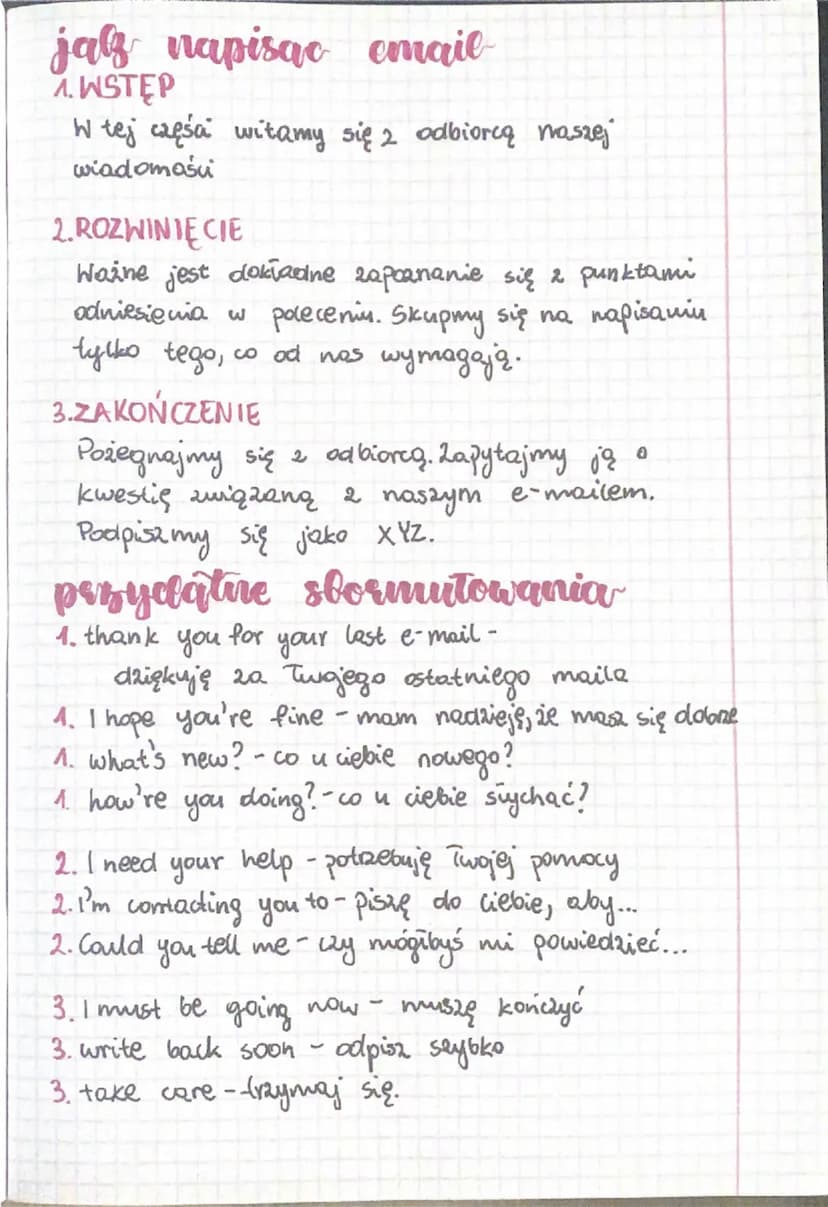 jak napisac email
1. WSTĘP
W tej części witamy się z odbiorcą naszej
wiadomości
2. ROZWINIĘCIE
Ważne jest dokładne zapoznanie się z punktami
odniesienia w poleceniu. Skupmy się na napisaniu
tylko tego, co od nas wymagają.
3. ZAKOŃCZENIE
Pożegnajmy się z odbiorcą. Zapytajmy ją o
kwestię związaną z naszym e-mailem.
Podpiszmy się jako XYZ.
przydatne sformułowania
1. thank you for your last e-mail -
dziękuję za Twojego ostatniego maila
1. I hope you're fine - mam nadzieję, że masz się dobrze
1. what's new? - co u ciebie nowego?
1. how're you doing? - co u ciebie słychać?
2. I need your help - potrzebuję Twojej pomocy
2. I'm contacting you to - piszę do ciebie, aby...
2. Could you tell me - czy mógłbyś mi powiedzieć...
3. I must be going now - muszę kończyć
3. write back soon - odpisz szybko
3. take care - trzymaj się.